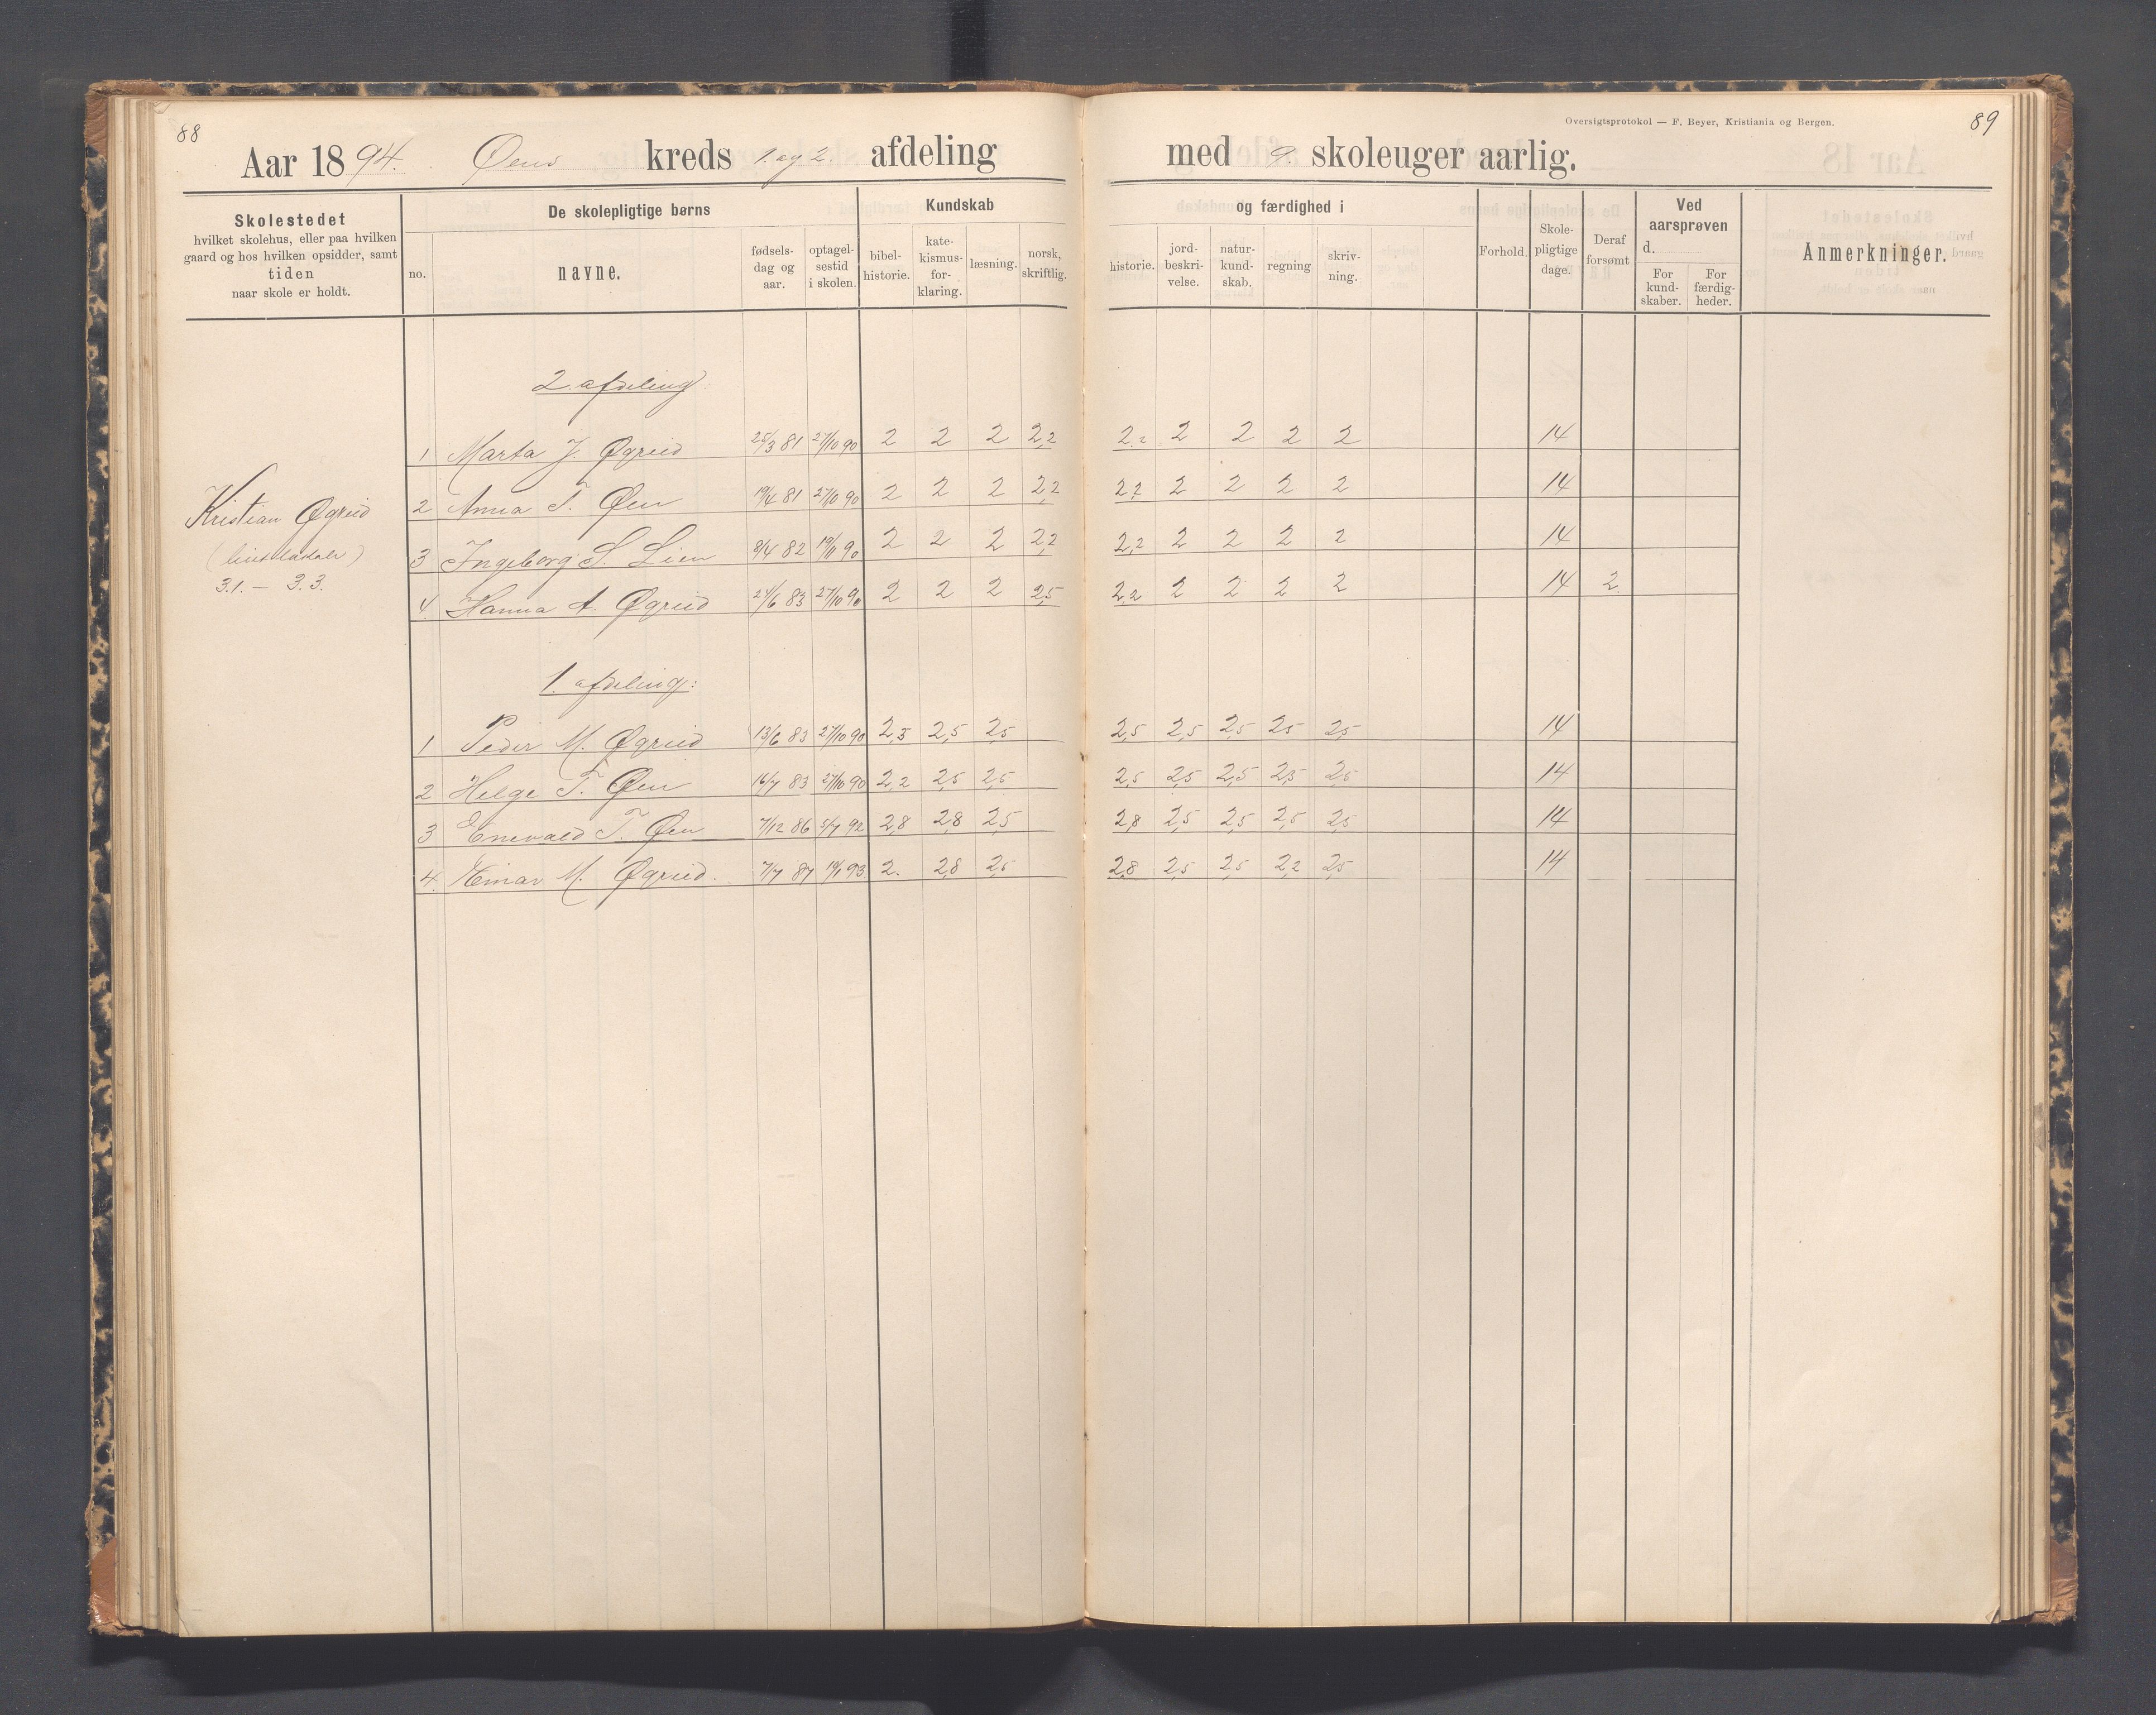 88
Aar 1894. Øens kreds 1. og 2. afdeling
Skolestedet
hvilket skolehus, eller paa hvilken
gaard og hos hvilken opsidder, samt
tiden
naar skole er holdt.
De skolepligtige børns
no.
navne.
fødsels-
dag og
aar.
optagel-
sestid
i skolen.
Kundskab
bibel-
historie.
kate-
kismus-
for-
klaring.
læsning.
norsk,
skriftlig.
Oversigtsprotokol — F. Beyer, Kristiania og Bergen.
89
med 9. skoleuger aarlig.
og færdighed i
historie.
jord-
beskri-
velse.
natur-
kund-
skab.
regning
skriv-
ning.
Forhold.
Skole-
pligtige
dage.
Deraf
forsømt
Ved
aarsprøven
d.
For
kund-
skaber.
For
færdig-
heder.
Anmerkninger.
2. afdeling:
1 Marta J. Øgreid 25/3 81 27/10 90 2 2 2 2,2 2,2 2 2 2 2 14
2 Anna T. Øen 19/4 81 27/10 90 2 2 2 2,2 2,2 2 2 2 2 14
3 Ingeborg S. Lien 8/4 82 90 2 2 2 2,2 2,2 2 2 2 2 14
4. Hanna A. Øgreid 83 27/10 90 2 2 2 2,5 2,2 2 2 2 2 14 2.
Kristian Øgreid
3.1. — 3.3.
1. afdeling:
1 Peder M. Øgreid 13/6 83 27/10 90 2,3 2,5 2,5 2,5 2,5 2,5 2,5 2,5 14
2 Helge T. Øen 16/7 83 27/10 90 2,2 2,5 2,5 2,5 2,5 2,5 2,5 2,5 14
3 Enevald T. Øen 7/12 86 5/7 92 2,8 2,8 2,5 2,8 2,5 2,5 2,5 2,5 14
4. Einar M. Øgreid. 7/7 87 93. 2. 2,8 2,5 2,8 2,5 2,5 2,2 2,5 14